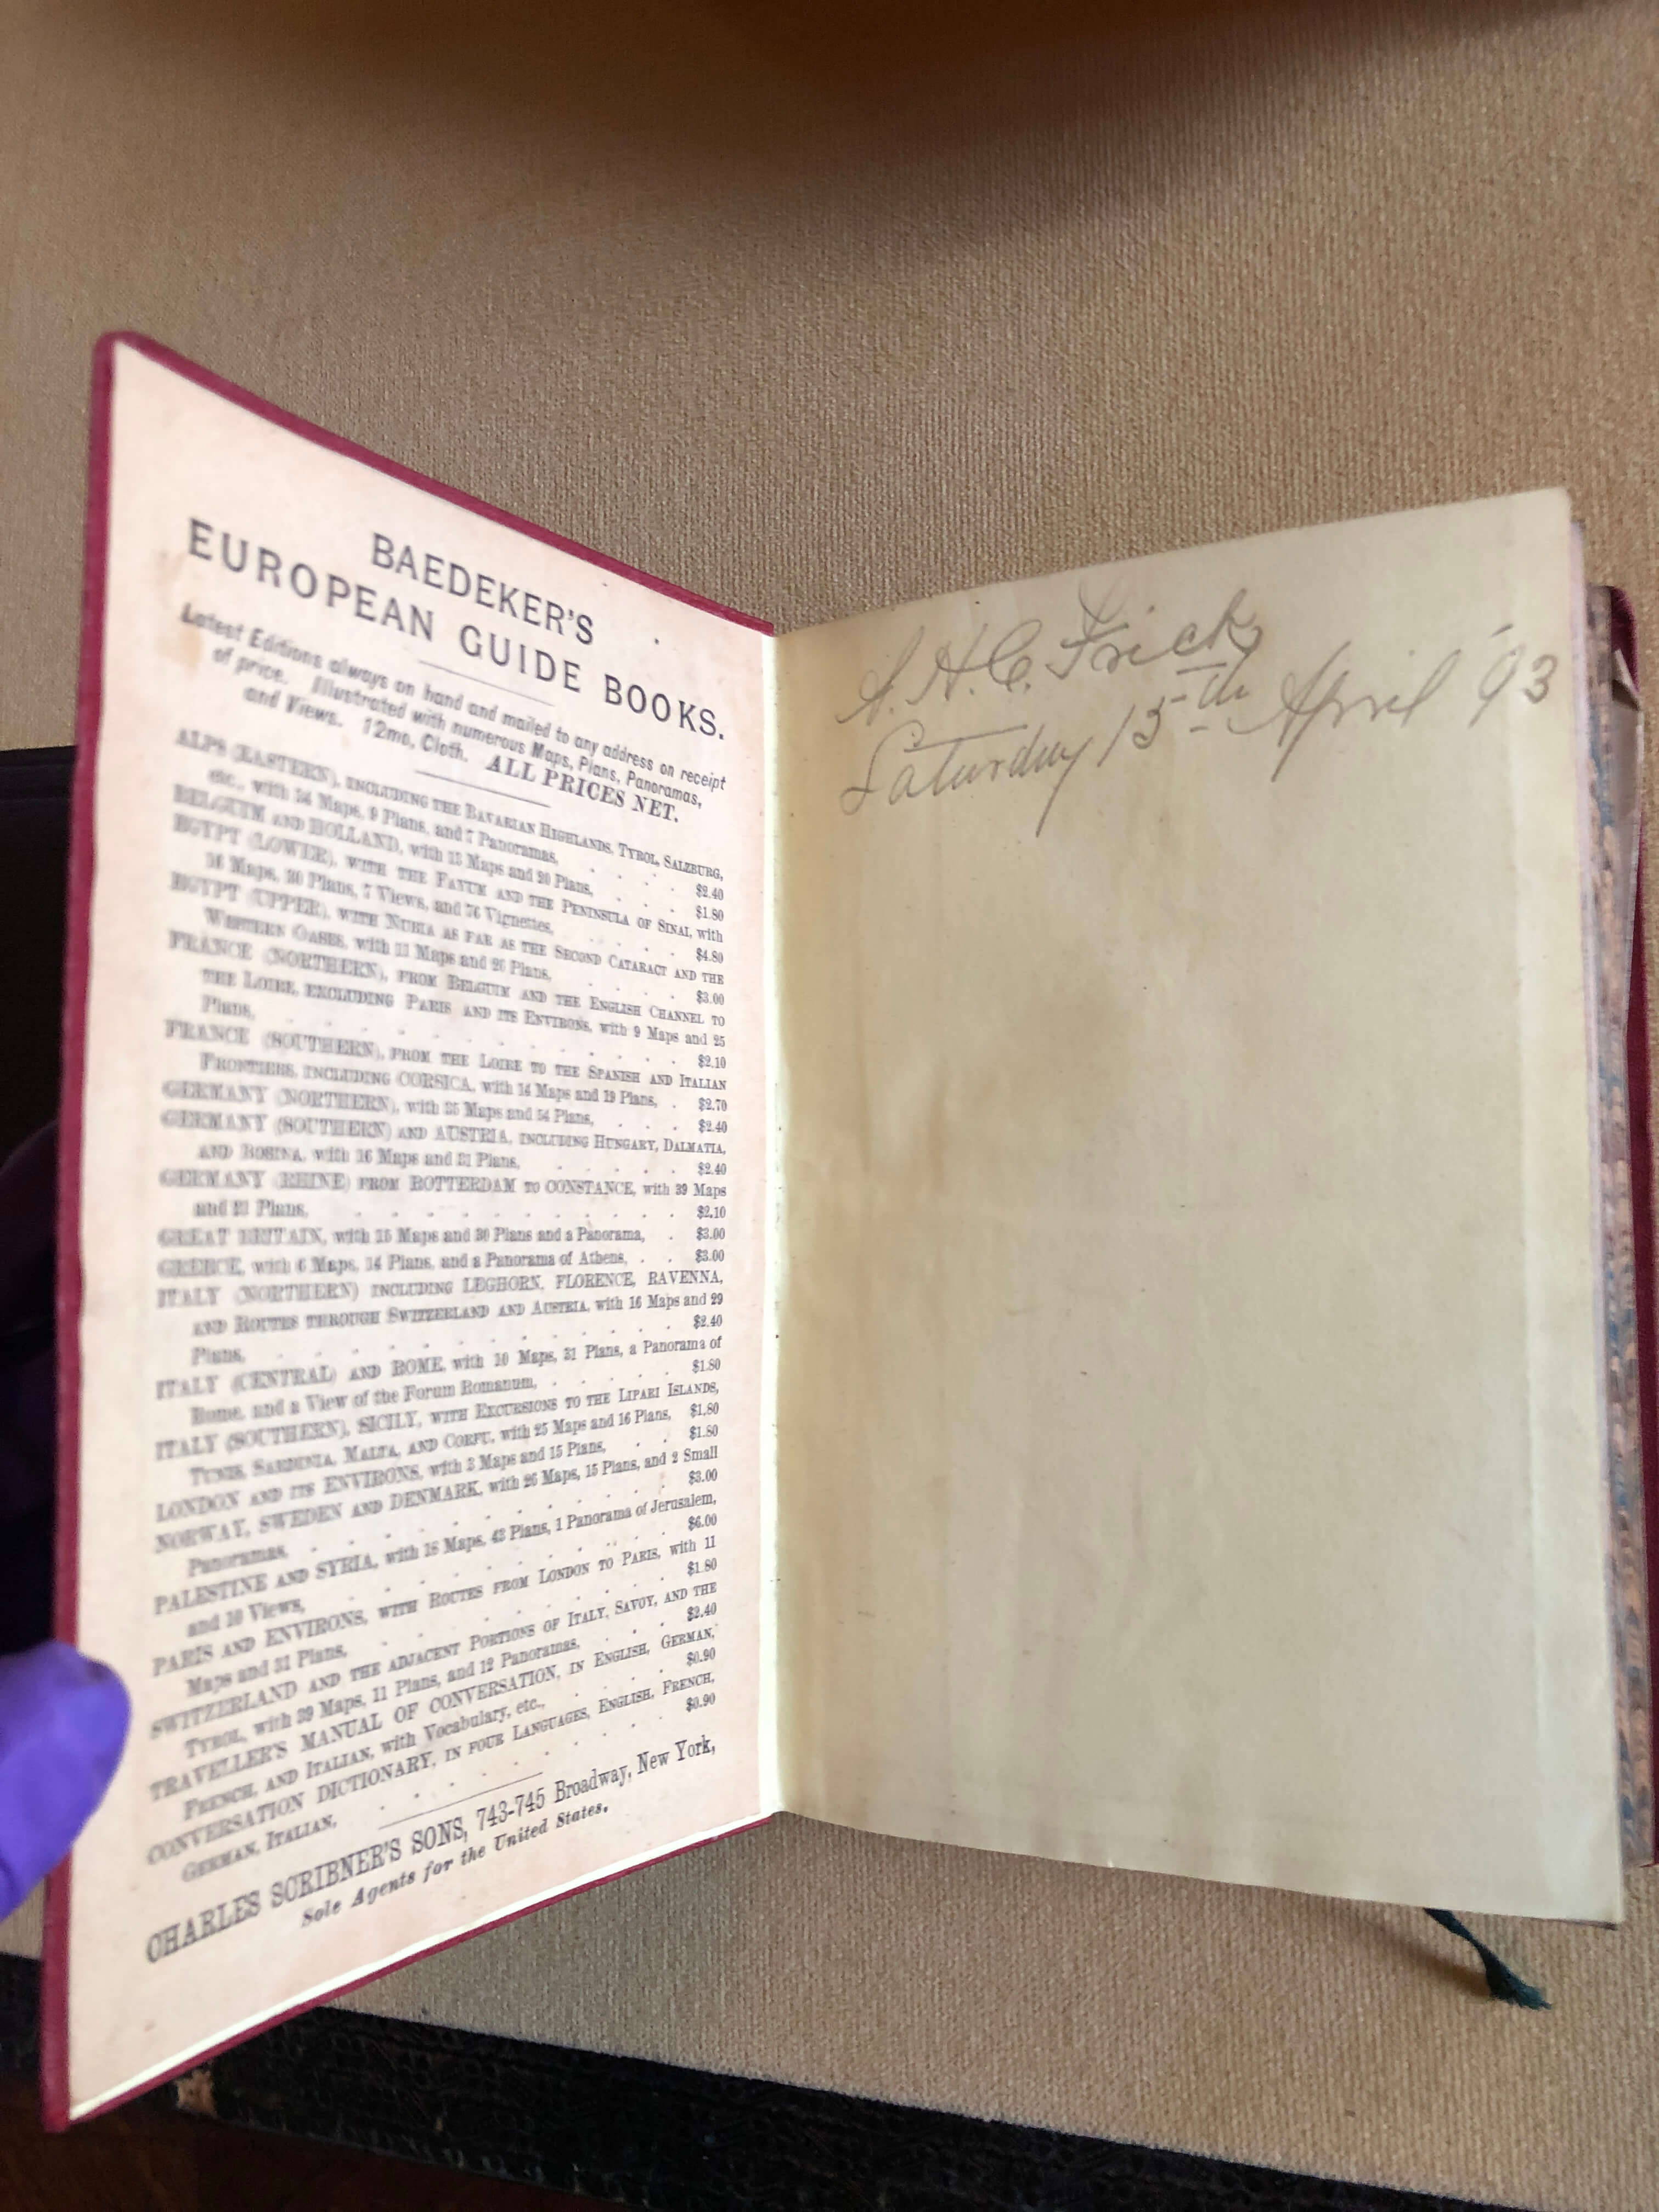 BAEDEKER'S
EUROPEAN GUIDE BOOKS.
Latest Editions always on hand and mailed to any address on receipt
of price. Illustrated with numerous Maps, Plans, Panoramas,
and Views. 12mo, Cloth. ALL PRICES NET.
ALPS (EASTERN), INCLUDING THE BAVARIAN HIGHLANDS, TYROL, SALZBURG,
etc., with 34 Maps, 9 Plans, and 7 Panoramas, . . . . $2.40
BELGIUM AND HOLLAND, with 13 Maps and 20 Plans, . . . $1.80
EGYPT (LOWER), WITH THE FAYUM AND THE PENINSULA OF SINAI, with
16 Maps, 30 Plans, 7 Views, and 76 Vignettes, . . . . $4.80
EGYPT (UPPER), WITH NUBIA AS FAR AS THE SECOND CATARACT AND THE
WESTERN OASES, with 11 Maps and 26 Plans, . . . . $3.00
FRANCE (NORTHERN), FROM BELGIUM AND THE ENGLISH CHANNEL TO
THE LOIRE, EXCLUDING PARIS AND ITS ENVIRONS, with 9 Maps and 25
Plans, . . . . . . . . . $2.10
FRANCE (SOUTHERN), FROM THE LOIRE TO THE SPANISH AND ITALIAN
FRONTIERS, INCLUDING CORSICA, with 14 Maps and 19 Plans, . $2.70
GERMANY (NORTHERN), with 35 Maps and 54 Plans, . . . $2.40
GERMANY (SOUTHERN) AND AUSTRIA, INCLUDING HUNGARY, DALMATIA,
AND BOSINA, with 16 Maps and 31 Plans, . . . . . $2.40
GERMANY (RHINE) FROM ROTTERDAM TO CONSTANCE, with 39 Maps
and 21 Plans, . . . . . . . . . $2.10
GREAT BRITAIN, with 15 Maps and 30 Plans and a Panorama, . $3.00
GREECE, with 6 Maps, 14 Plans, and a Panorama of Athens, . . $3.00
ITALY (NORTHERN) INCLUDING LEGHORN, FLORENCE, RAVENNA,
AND ROUTES THROUGH SWITZERLAND AND AUSTRIA, with 16 Maps and 29
Plans, . . . . . . . . . $2.40
ITALY (CENTRAL) AND ROME, with 10 Maps, 31 Plans, a Panorama of
Rome, and a View of the Forum Romanum, . . . . . $1.80
ITALY (SOUTHERN), SICILY, WITH EXCURSIONS TO THE LIPARI ISLANDS,
TUNIS, SARDINIA, MALTA, AND CORFU, with 25 Maps and 16 Plans, $1.80
LONDON AND ITS ENVIRONS, with 3 Maps and 15 Plans, . . $1.80
NORWAY, SWEDEN AND DENMARK, with 26 Maps, 15 Plans, and 2 Small
Panoramas, . . . . . . . . $3.00
PALESTINE AND SYRIA, with 18 Maps, 43 Plans, 1 Panorama of Jerusalem,
and 10 Views, . . . . . . . . $6.00
PARIS AND ENVIRONS, WITH ROUTES FROM LONDON TO PARIS, with 11
Maps and 31 Plans, . . . . . . . $1.80
SWITZERLAND AND THE ADJACENT PORTIONS OF ITALY, SAVOY, AND THE
TYROL, with 39 Maps, 11 Plans, and 12 Panoramas, . . . $2.40
TRAVELLER'S MANUAL OF CONVERSATION, IN ENGLISH, GERMAN,
FRENCH, AND ITALIAN, with Vocabulary, etc., . . . . $0.90
CONVERSATION DICTIONARY, IN FOUR LANGUAGES, ENGLISH, FRENCH,
GERMAN, ITALIAN, . . . . . . . $0.90
CHARLES SCRIBNER'S SONS, 743-745 Broadway, New York,
Sole Agents for the United States.
A. H. C. Frick
Saturday 15th April '93